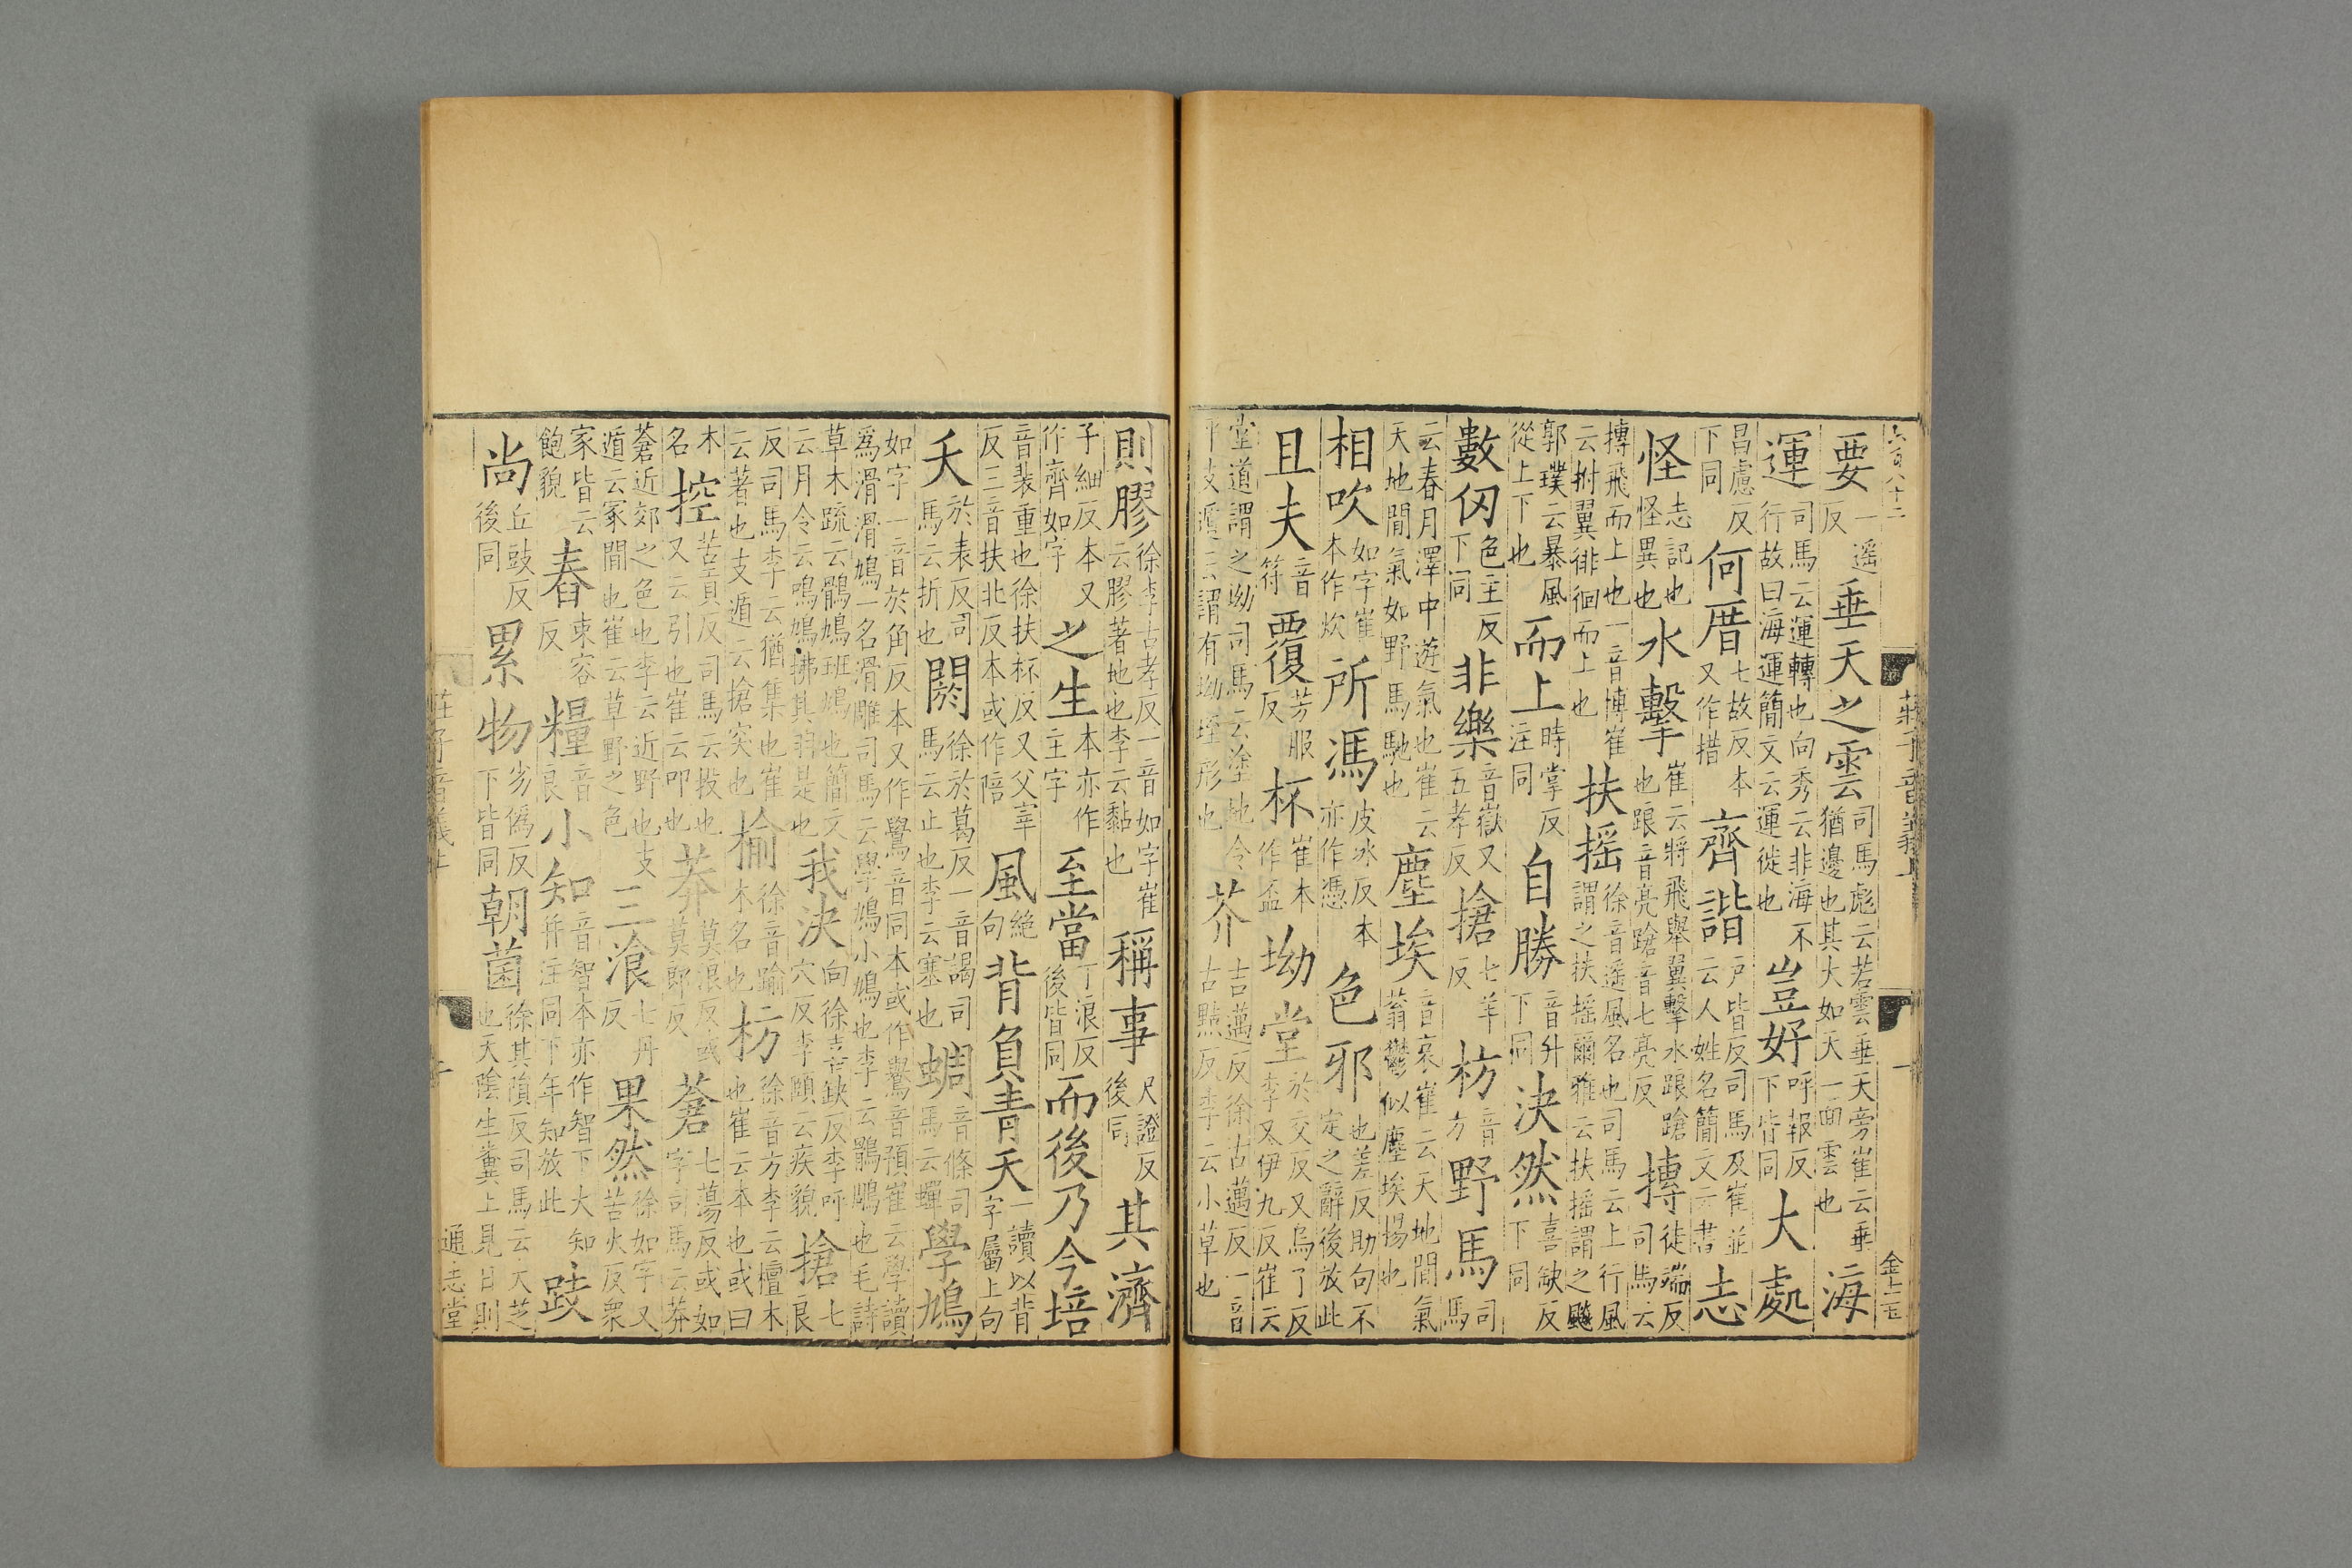 六百八十二 莊子音義上 一 金士玉
要一遥反垂天之雲司馬彪云若雲垂天旁崔云垂猶邊也其大如天一面雲也海
運司馬云運轉也向秀云非海不行故曰海運簡文云運徙也豈好呼報反下皆同大處
昌慮反下同何厝七故反本又作措齊諧户皆反司馬及崔並云人姓名簡文云書志
怪志記也怪異也水擊崔云將飛舉翼擊水踉蹌也踉音亮蹌音七亮反摶徒端反司馬云
摶飛而上也一音博崔云拊翼徘徊而上也扶摇徐音遥風名也司馬云上行風謂之扶摇爾雅云扶摇謂之飈
郭璞云暴風從上下也而上時掌反注同自勝音升下同決然喜缺反下同
數仞色主反下同非樂音嶽又五孝反搶七羊反枋音方野馬司馬
云春月澤中遊氣也崔云天地間氣如野馬馳也塵埃音哀崔云天地間氣蓊鬱似塵埃揚也
相吹如字崔本作炊所馮皮冰反本亦作憑色邪也差反助句不定之辭後放此
且夫音符覆芳服反杯崔本作盃坳堂於交反又烏了反李又伊九反崔云
堂道謂之坳司馬云塗地令平支遁云謂有坳垤形也芥吉邁反徐古邁反一音古黠反李云小草也
則膠徐李古孝反一音如字崔云膠著地也李云黏也稱事尺證反後同其濟
子細反本又作齊如字之生本亦作主字至當丁浪反後皆同而後乃今培
音裴重也徐扶杯反又父宰反三音扶北反本或作陪風絶句背負青天一讀以背字屬上句
夭於表反司馬云折也閼徐於葛反一音謁司馬云止也李云塞也蜩音條司馬云蟬學鳩
如字一音於角反本又作鷽音同本或作鸒音預崔云學讀爲滑滑鳩一名滑雕司馬云學鳩小鳩也李云鶻鵰也毛詩
草木疏云鶻鳩班鳩也簡文云月令云鳴鳩拂其羽是也我決向徐喜缺反李呼穴反李頤云疾貌搶七良
反司馬李云猶集也崔云著也支遁云搶突也榆徐音踰木名也枋徐音方李云檀木也崔云本也或曰
木名控苦貢反司馬云投也又云引也崔云叩也莽莫浪反或莫郎反蒼七蕩反或如字司馬云莽
蒼近郊之色也李云近野也支遁云冢間也崔云草野之色三湌七丹反果然徐如字又苦火反衆
家皆云飽貌舂束容反糧音良小知音智本亦作智下大知并注同下年知放此跂
尚丘豉反後同累物劣僞反下皆同朝菌徐其隕反司馬云大芝也天陰生糞上見日則
莊子音義上 通志堂